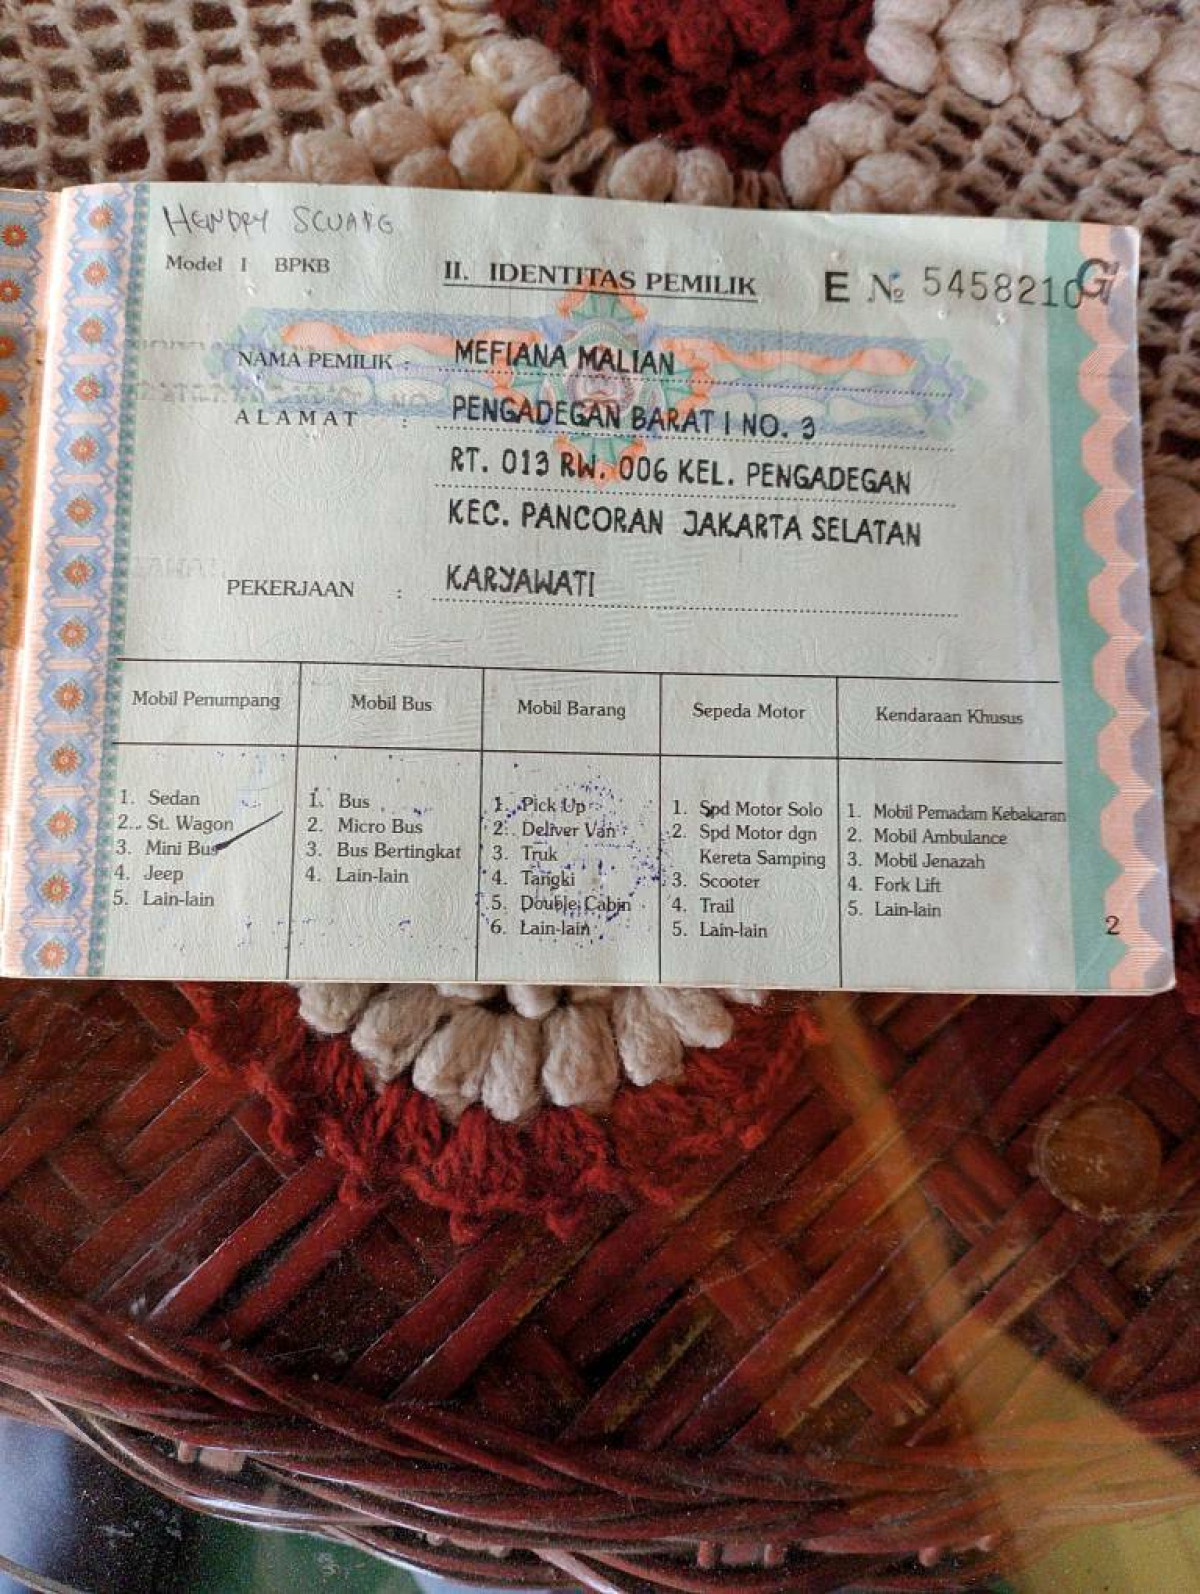 HENDRY SCUARG
Model I BPKB
II. IDENTITAS PEMILIK
E No 5458210 G
NAMA PEMILIK : MEFIANA MALIAN
ALAMAT : PENGADEGAN BARAT I NO. 3
RT. 013 RW. 006 KEL. PENGADEGAN
KEC. PANCORAN JAKARTA SELATAN
PEKERJAAN : KARYAWATI
Mobil Penumpang
1. Sedan
2. St. Wagon
3. Mini Bus
4. Jeep
5. Lain-lain
Mobil Bus
1. Bus
2. Micro Bus
3. Bus Bertingkat
4. Lain-lain
Mobil Barang
1. Pick Up
2. Deliver Van
3. Truk
4. Tangki
5. Double Cabin
6. Lain-lain
Sepeda Motor
1. Spd Motor Solo
2. Spd Motor dgn
Kereta Samping
3. Scooter
4. Trail
5. Lain-lain
Kendaraan Khusus
1. Mobil Pemadam Kebakaran
2. Mobil Ambulance
3. Mobil Jenazah
4. Fork Lift
5. Lain-lain
2